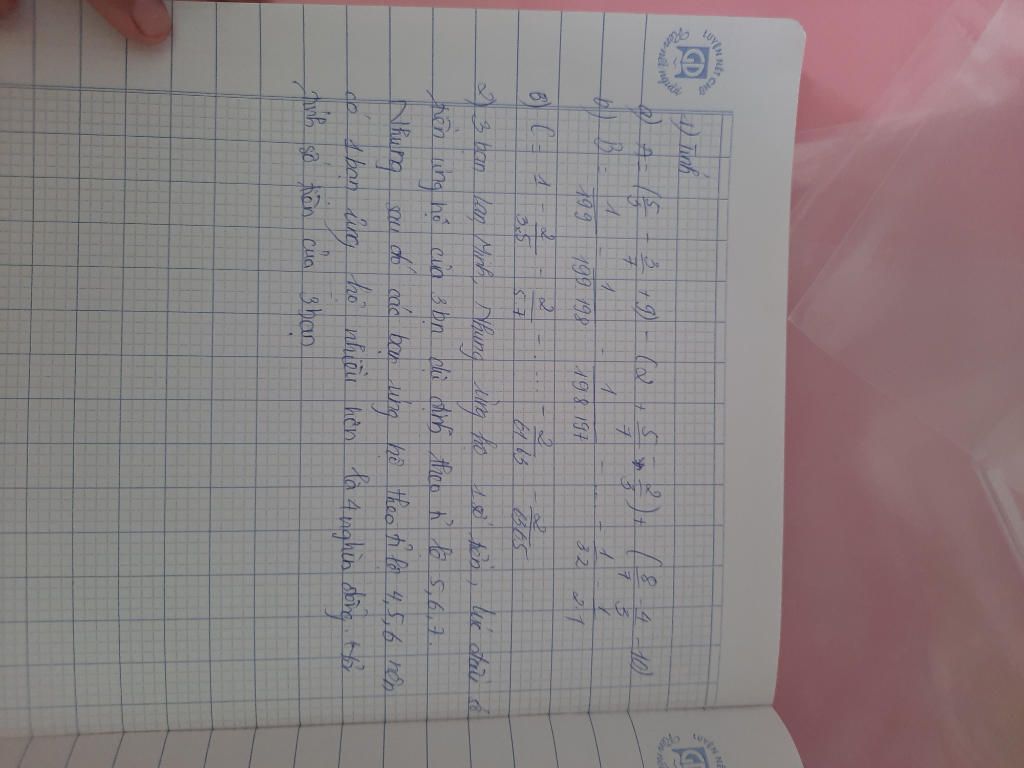 LUYỆN NÉT CHỮ
Rèn nết người
1) Tính
a) A = (5/3 - 3/7 + 9) - (2 + 5/7 + 2/3) + (8/7 - 4/3 - 10)
b) B = 1/199 - 1/199.198 - 1/198.197 - ... - 1/3.2 - 1/2.1
c) C = 1 - 2/3.5 - 2/5.7 - .... - 2/61.63 - 2/63.65
2) 3 bạn Lan, Minh, Nhung ủng hộ 1 số tiền, lúc đầu số
tiền ủng hộ của 3 bạn dự định theo tỉ lệ 5, 6, 7.
Nhưng sau đó các bạn ủng hộ theo tỉ lệ 4, 5, 6 nên
có 1 bạn ủng hộ nhiều hơn là 4 nghìn đồng.
Tính số tiền của 3 bạn